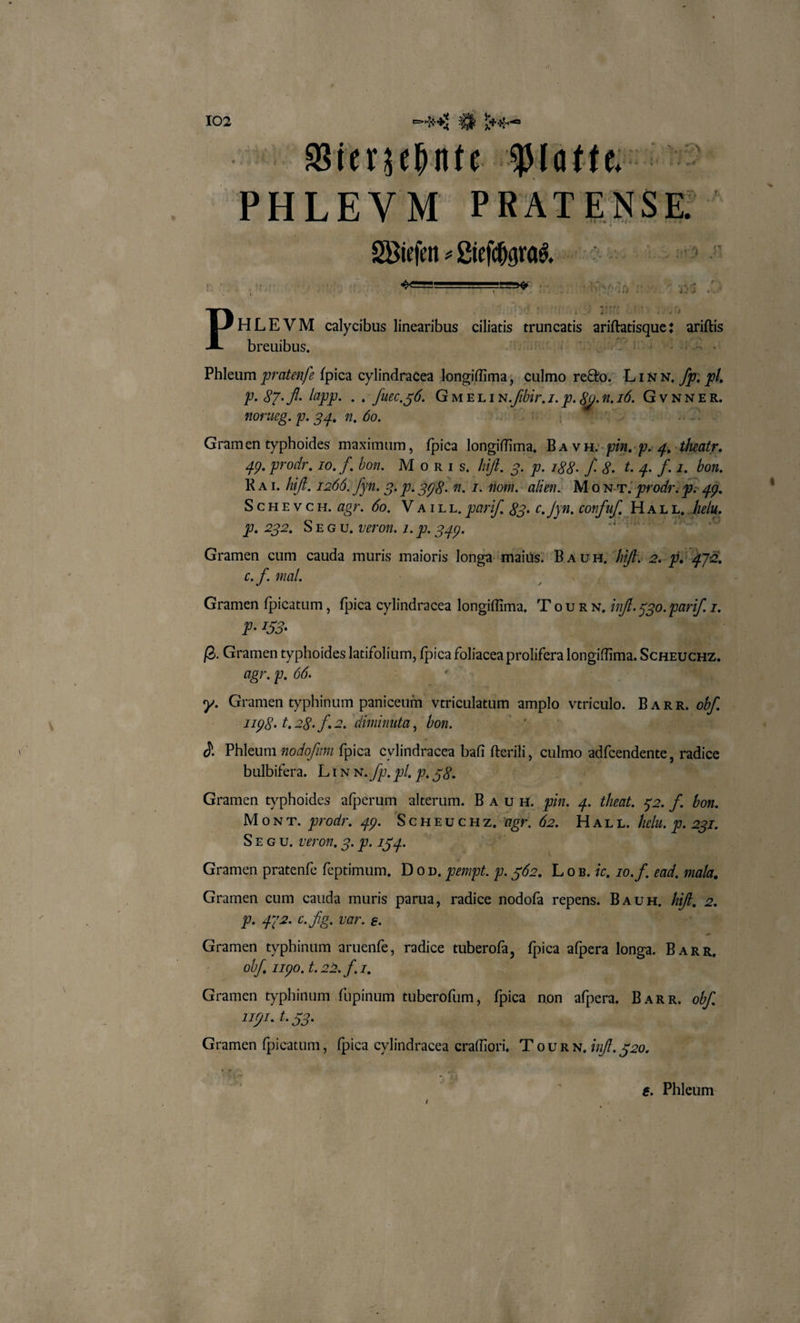 102
Vierzehnte Platte.
PHLEVM PRATENSE.
Wiesen-Lieschgras.
PHLEVM calycibus linearibus ciliatis truncatis ariſtatisque: ariſtis
breuibus.
Phleum pratenſe ſpica cylindracea longiſſima, culmo recto. Linn. ſp. pl.
p. 87. fl. lapp. . . ſuec. 56. Gmelin. ſibir. 1. p. 89. n. 16. Gvnner.
norueg. p. 34. n. 60.
Gramen typhoides maximum, ſpica longiſſima. Bavh. pin. p. 4. theatr.
49. prodr. 10. f. bon. Moris. hiſt. 3. p. 188. ſ. 8. t. 4. f. 1. bon.
Rai. hiſt. 1266. ſyn. 3. p. 398. n. 1. nom. alien. Mont. prodr. p. 49.
Schevch. agr. 60. Vaill. pariſ. 83. c. ſyn. confuſ. Hall. helu.
p. 232. Segu. veron. 1. p. 349.
Gramen cum cauda muris maioris longa maius. Bauh. hiſt. 2. p. 472.
c. f. mal.
Gramen ſpicatum, ſpica cylindracea longiſſima. Tourn. inſt. 530. pariſ. 1.
p. 153.
β. Gramen typhoides latifolium, ſpica foliacea prolifera longiſſima. Scheuchz.
agr. p. 66.
γ. Gramen typhinum paniceum vtriculatum amplo vtriculo. Barr. obſ.
1198. t. 28. f. 2. diminuta, bon.
δ. Phleum nodoſum ſpica cylindracea baſi ſterili, culmo adſcendente, radice
bulbifera. Linn. ſp. pl. p. 58.
Gramen typhoides aſperum alterum. Bauh. pin. 4. theat. 52. f. bon.
Mont. prodr. 49. Scheuchz. agr. 62. Hall. helu. p. 231.
Segu. veron. 3. p. 154.
Gramen pratenſe ſeptimum. Dod. pempt. p. 562. Lob. ic. 10. f. ead. mala.
Gramen cum cauda muris parua, radice nodoſa repens. Bauh. hiſt. 2.
p. 472. c. fig. var. ε.
Gramen typhinum aruenſe, radice tuberoſa, ſpica aſpera longa. Barr.
obſ. 1190. t. 22. f. 1.
Gramen typhinum ſupinum tuberoſum, ſpica non aſpera. Barr. obſ.
1191. t. 53.
Gramen ſpicatum, ſpica cylindracea craſſiori. Tourn. inſt. 520.
ε. Phleum